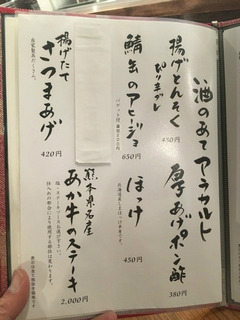 酒のあて アラカルト
揚げとんそく
ぴり辛ダレ
450円
厚あげポン酢
380円
鯖缶のアヒージョ
バゲット付
650円
ほっけ
450円
揚げたて
さつまあげ
420円
熊本県名産
あか牛のステーキ
2.000円